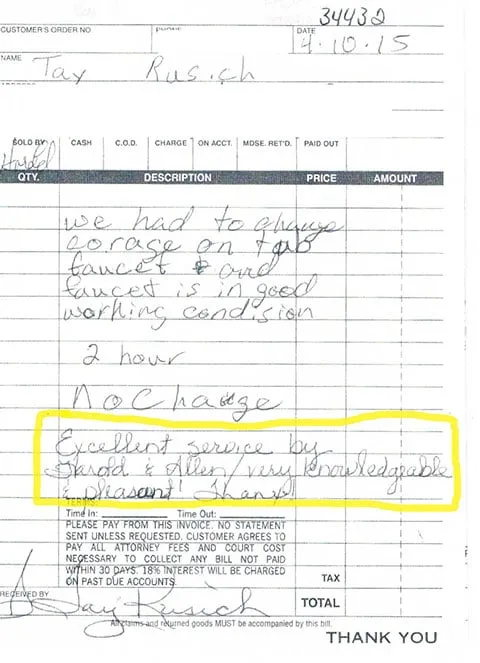 34432
CUSTOMER'S ORDER NO PHONE DATE
4.10.15
NAME
Tay Rusich
ADDRESS
SOLD BY CASH C.O.D. CHARGE ON ACCT. MDSE. RET'D. PAID OUT
Harold
QTY. DESCRIPTION PRICE AMOUNT
we had to change
corage on tub
faucet & and
faucet is in good
working condision
2 hour
No Charge
Excellent service by
Harold & Allen/very knowledgeable
& pleasant! Thanx!
TERMS:
Time In: Time Out:
PLEASE PAY FROM THIS INVOICE. NO STATEMENT
SENT UNLESS REQUESTED. CUSTOMER AGREES TO
PAY ALL ATTORNEY FEES AND COURT COST
NECESSARY TO COLLECT ANY BILL NOT PAID
WITHIN 30 DAYS. 18% INTEREST WILL BE CHARGED
ON PAST DUE ACCOUNTS.
TAX
RECEIVED BY
Tay Rusich
TOTAL
All claims and returned goods MUST be accompanied by this bill.
THANK YOU